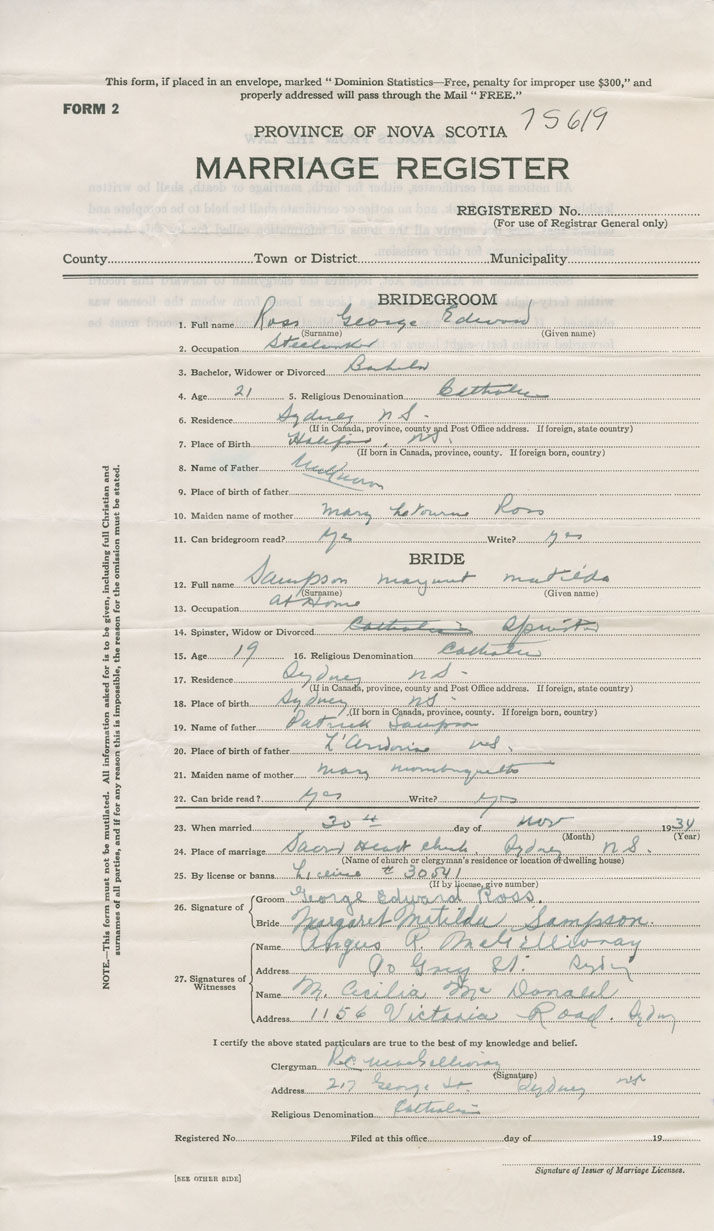 This form, if placed in an envelope, marked "Dominion Statistics—Free, penalty for improper use $300," and
properly addressed will pass through the Mail "FREE."
FORM 2
75619
PROVINCE OF NOVA SCOTIA
MARRIAGE REGISTER
REGISTERED No.
(For use of Registrar General only)
County Town or District Municipality
BRIDEGROOM
1. Full name Ross George Edward
(Surname) (Given name)
2. Occupation Steelworker
3. Bachelor, Widower or Divorced Bachelor
4. Age 21 5. Religious Denomination Catholic
6. Residence Sydney N S -
(If in Canada, province, county and Post Office address. If foreign, state country)
7. Place of Birth Halifax, NS.
(If born in Canada, province, county. If foreign born, country)
8. Name of Father Unknown
9. Place of birth of father
10. Maiden name of mother Mary Ross
11. Can bridegroom read? yes Write? yes
BRIDE
12. Full name Sampson Margaret Matilda
(Surname) (Given name)
13. Occupation at Home
14. Spinster, Widow or Divorced Catholic Spinster
15. Age 19 16. Religious Denomination Catholic
17. Residence Sydney NS -
(If in Canada, province, county and Post Office address. If foreign, state country)
18. Place of birth Sydney NS -
(If born in Canada, province, county. If foreign born, country)
19. Name of father Patrick Sampson
20. Place of birth of father L'Ardoise NS.
21. Maiden name of mother Mary
22. Can bride read? yes Write? yes
23. When married 30th day of Nov 1934
(Month) (Year)
24. Place of marriage Sacred Heart Church, Sydney N S.
(Name of church or clergyman's residence or location of dwelling house)
25. By license or banns License # 30541
(If by license, give number)
26. Signature of Groom George Edward Ross.
Bride Margaret Matilda Sampson.
27. Signatures of Witnesses
Name Angus R. McGillivray
Address 90 Grey St. Sydney
Name M. Cecilia McDonald
Address 1156 Victoria Road. Sydney
I certify the above stated particulars are true to the best of my knowledge and belief.
Clergyman R.C. MacGillivray
(Signature)
Address 217 George St. Sydney NS
Religious Denomination Catholic
Registered No. Filed at this office day of 19
Signature of Issuer of Marriage Licenses.
[SEE OTHER SIDE]
NOTE.—This form must not be mutilated. All information asked for is to be given, including full Christian and
surnames of all parties, and if for any reason this is impossible, the reason for the omission must be stated.